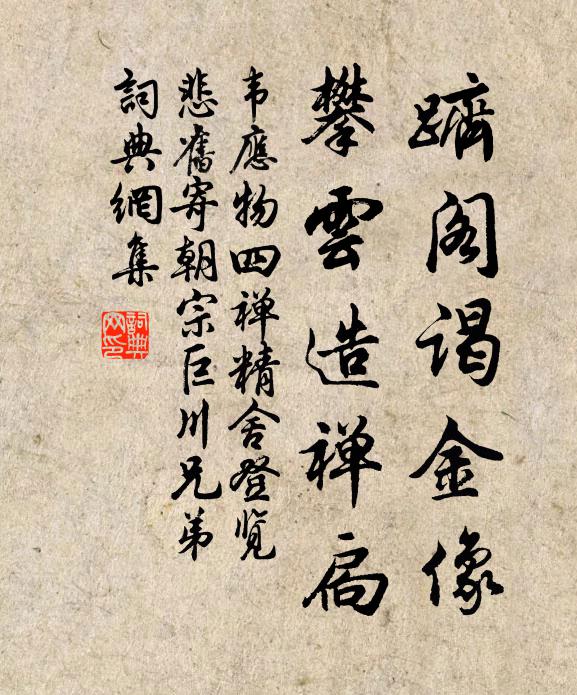 躋阁谒金像
攀雲造禅扃
韦應物四禅精舍登览
悲舊寄朝宗巨川兄弟
詞典網集
詞典网印